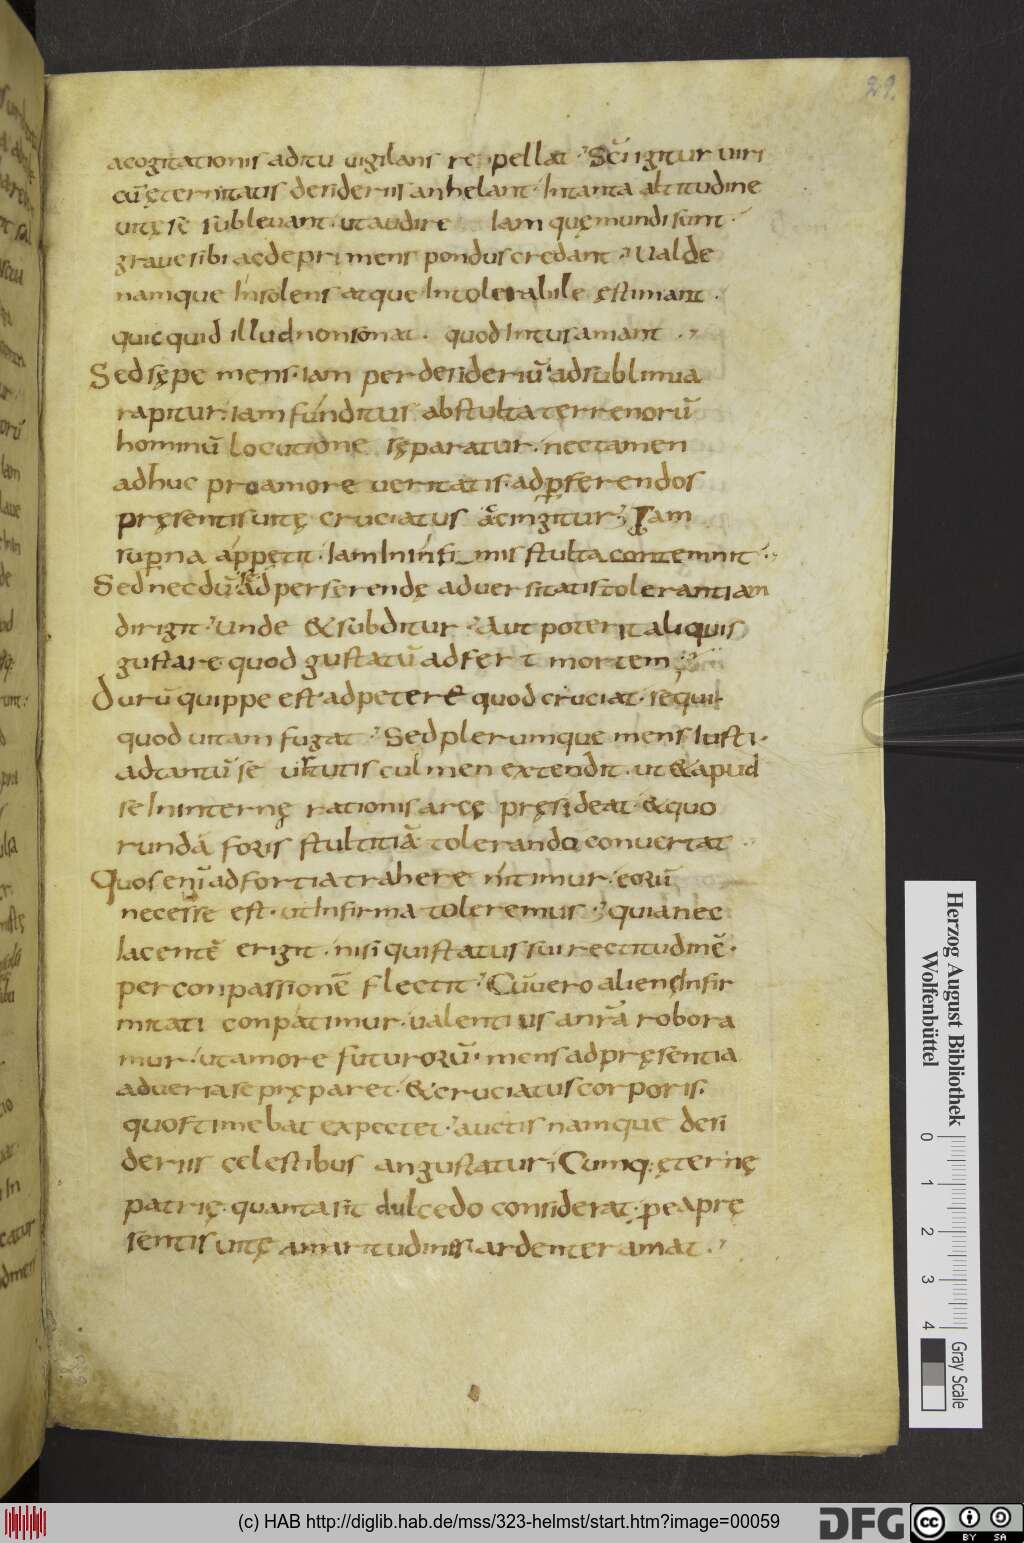 29.
acogitationis aditu uigilans repellat. Sc̄i igitur uiri
cū ęternitatis desideriis anhelant. Intanta altitudine
uitę se subleuant. ut audire iam quę mundi sunt.
graue sibi ac deprimens pondus credant. Ualde
namque Insolens atque Intolerabile ęstimant.
quicquid illud non sonat. quod Intus amant.
Sed sępe mens. iam per desideriū ad sublimia
rapitur. iam funditus abstulta terrenorū
hominū locutione sęparatur. nec tamen
adhuc pro amore ueritatis. ad perferendos
pręsentis uitę cruciatus accingitur. Iam
superna appętit. Iam In infimis stulta contemnit.
Sed necdū se ad perferendę aduersitatis tolerantiam
dirigit. Unde & subditur. Aut poterit aliquis
gustare quod gustatū adfert mortem
Durū quippe est adpetere quod cruciat. sequi
quod uitam fugat. Sed plerumque mens Iusti.
ad tantū se uirtutis culmen extendit. ut & apud
se In internę rationis arcę pręsideat. & quo
rundā foris stultitiā tolerando conuertat.
Quos eni ad fortia trahere nitimur. eorū
necesse est. ut Infirma toleremus. quia nec
Iacentē erigit. nisi qui status sui rectitudinē.
per conpassionē flectit. Cū uero alienę Infir
mitati conpatimur. ualentius a nr̄a robora
mur. ut amore futurorū. mens ad pręsentia
aduersa se pręparet. & cruciatus corporis.
quos timebat expectet. auctis namque desi
deriis celestibus angustatur. Cumq: ęternę
patrię. quanta sit dulcedo considerat. pro ea prę
sentis uitę amaritudines ardenter amat.
Herzog August Bibliothek
Wolfenbüttel
0 1 2 3 4
Gray Scale
(c) HAB http://diglib.hab.de/mss/323-helmst/start.htm?image=00059
DFG
cc BY SA